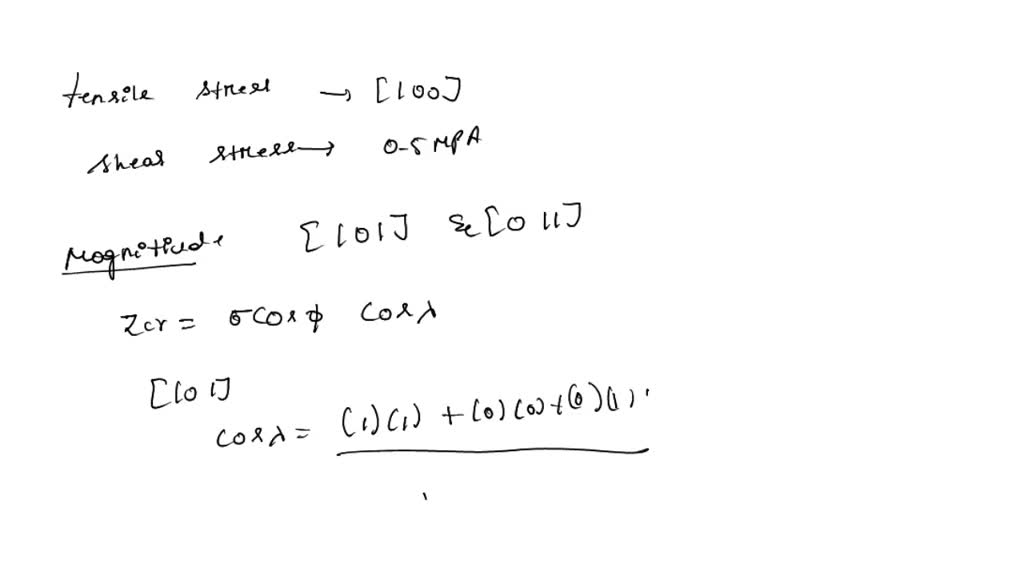 tensile stress → [100]
shear stress → 0-5 MPA
Magnitude [101] & [011]
Zcr = σcos φ cos λ
[101]
cos λ = (1)(1) + (0)(0) + (0)(1)